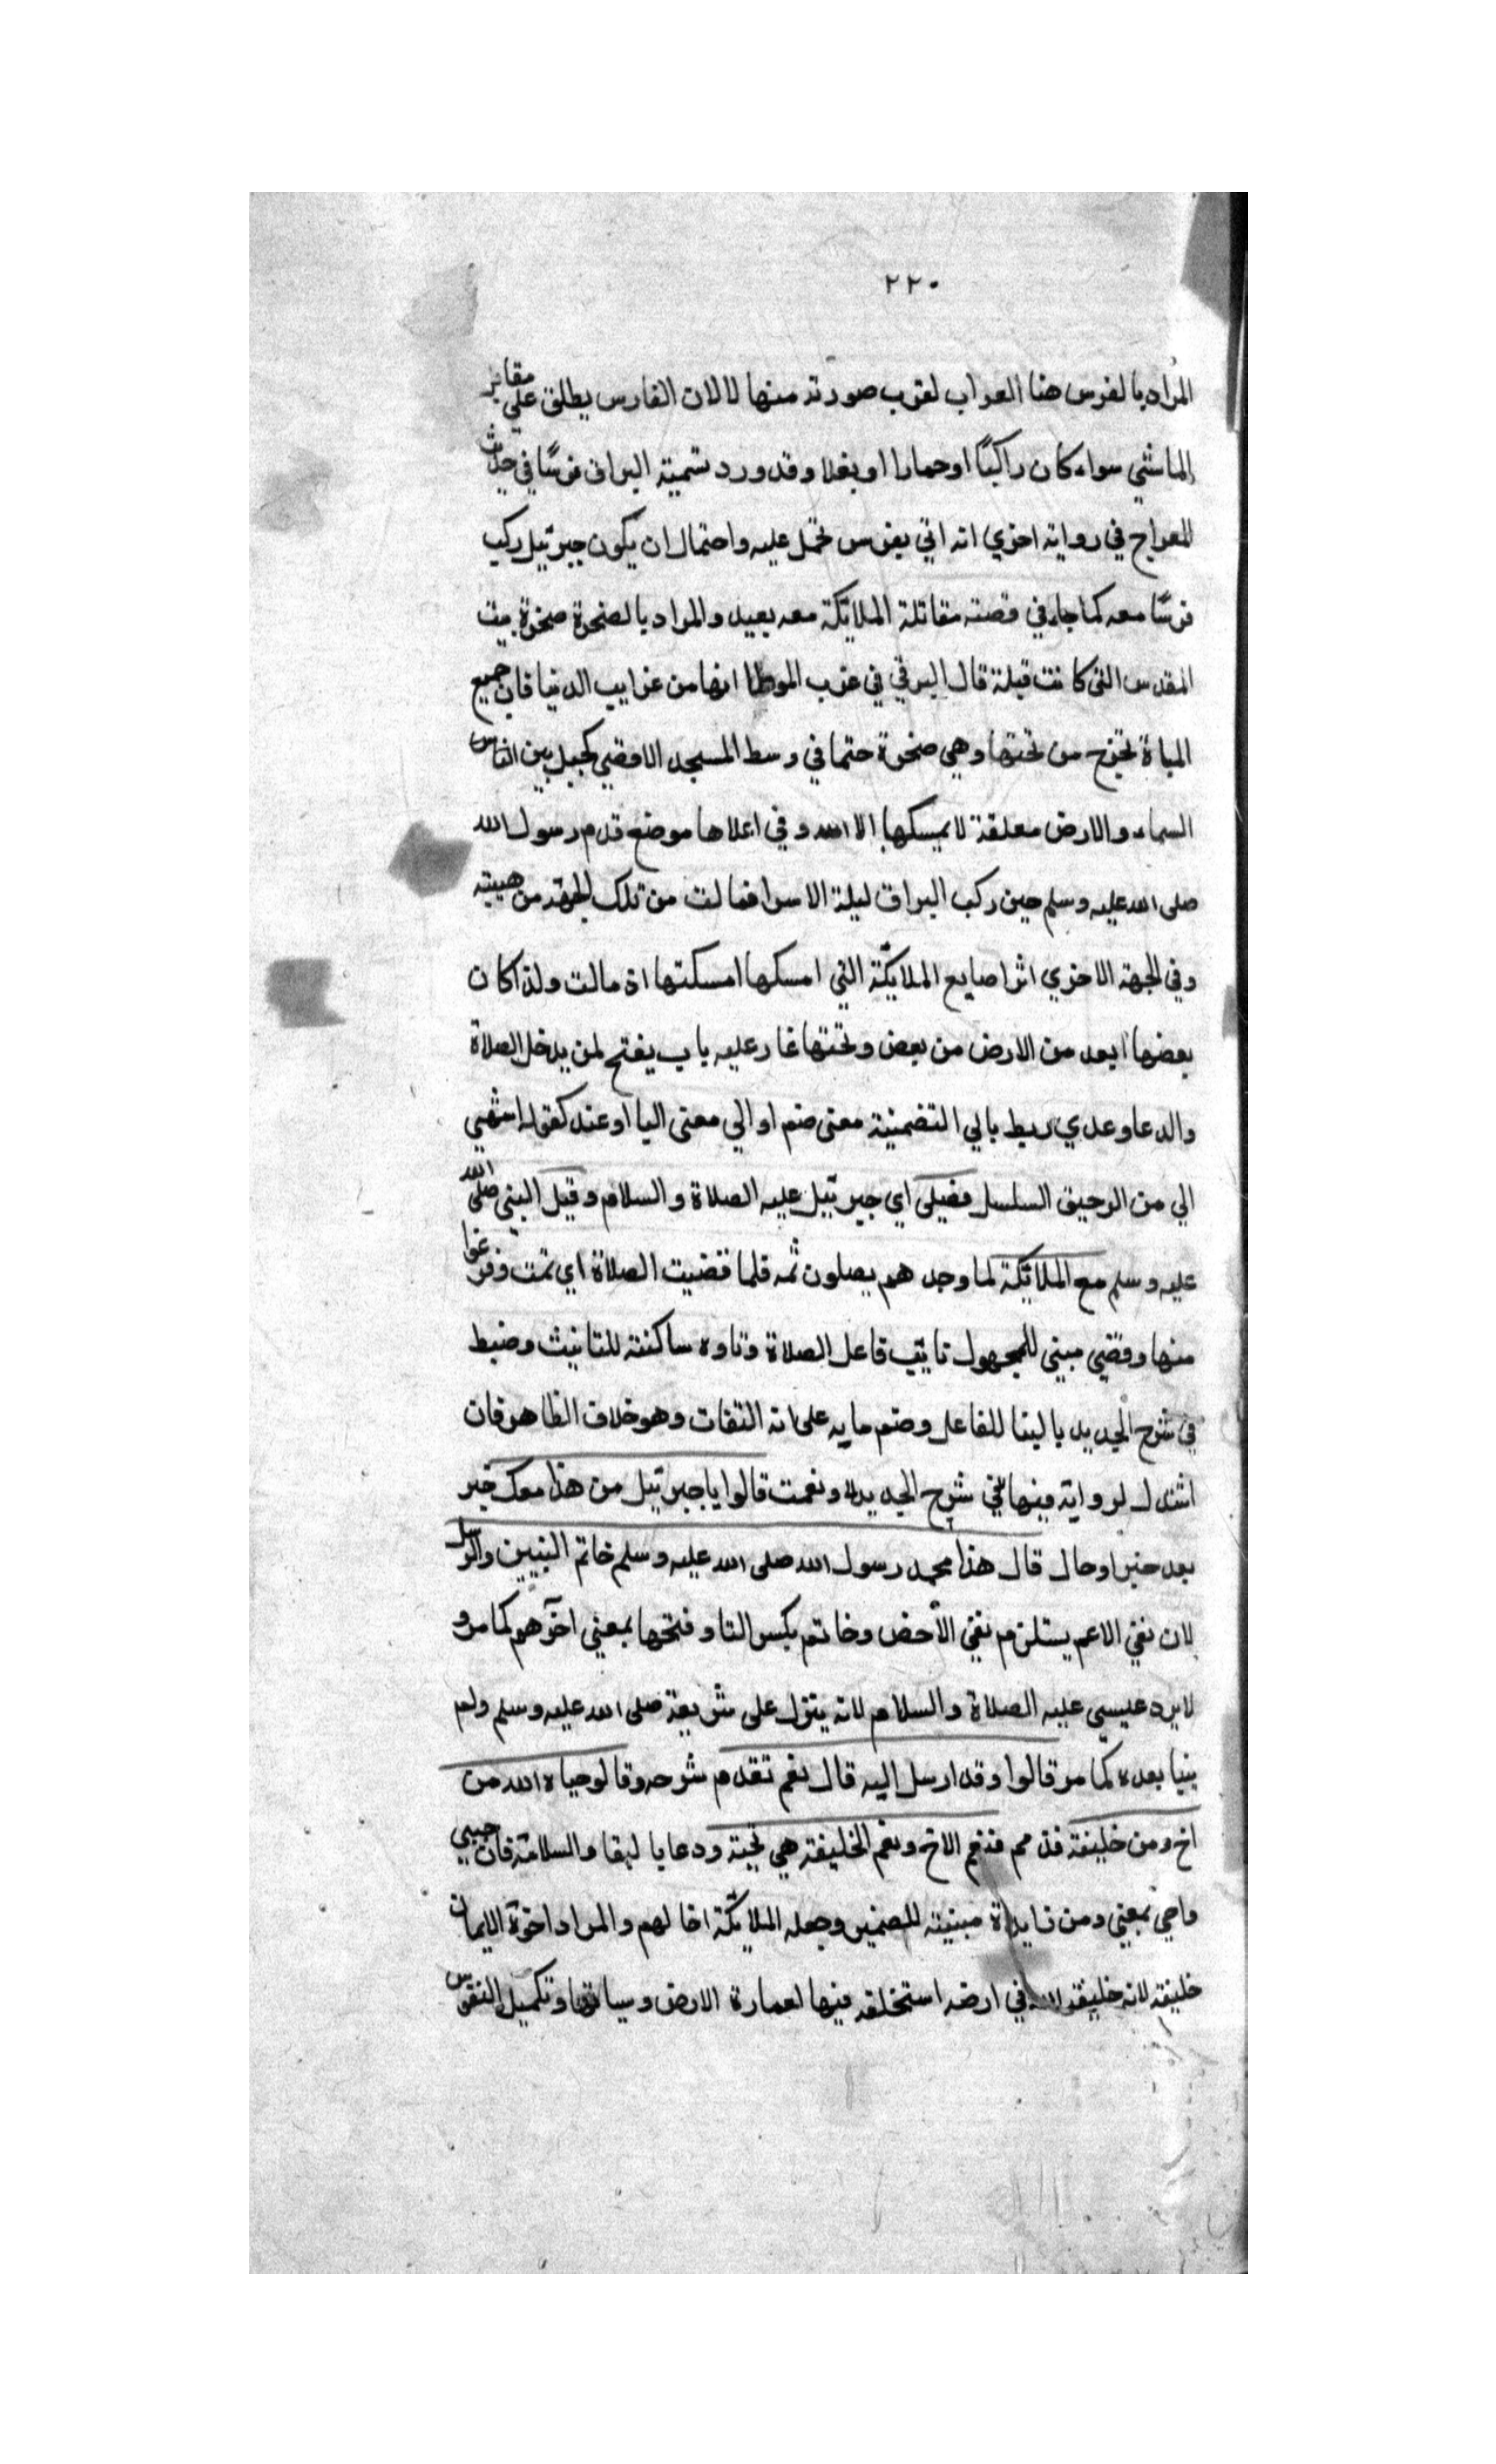 ٢٢٠
المراد بالفرس هنا العراب لقرب صورته منها لا لان الفارس يطلق على مقابر
الماشي سواء كان راكبًا او حمارا او بغلا وقد ورد تسمية البراق فرسًا في حديث
المعراج في رواية اخري انه اتي بفرس تحمل عليه واحتمال ان يكون جبرئيل ركب
فرسًا معه كما جاء في قصة مقاتلة الملائكة معه بعيد والمراد بالصخرة صخرة بيت
المقدس التي كانت قبلة قال البرقي في غرب الموطا انها من غرايب الدنيا فان جميع
المياة تخرج من تحتها وهي صخرة حتما في وسط المسجد الاقصي كجبل بين الناس
السماء والارض معلقة لا يمسكها الا الله وفي اعلاها موضع قدم رسول الله
صلى الله عليه وسلم حين ركب البراق ليلة الاسرا فمالت من تلك الجهة من هيبته
وفي الجهة الاخري اثر اصابع الملائكة التي امسكها امسكتها اذ مالت ولذا كان
بعضها ابعد من الارض من بعض وتحتها غار عليه باب يفتح لمن يدخل الصلاة
والدعا وعدي ربط بالي التضمنية معني ضم او الي معنى اليا او عند كقوله اشهي
الي من الرحيق السلسل فصلى اي جبرئيل عليه الصلاة والسلام وقيل النبي صلى الله
عليه وسلم مع الملائكة لما وجد هم يصلون ثمه فلما قضيت الصلاة اي تمت وفرغوا
منها وقضي مبني للمجهول نايب فاعل الصلاة وتاوه ساكنة للتانيث وضبط
في شرح الجديد بالبنا للفاعل وضم مايه على انه التفات وهو خلاف الظاهر فان
اشدل لرواية فيها في شرح الجديدة ونعمت قالوا يا جبرئيل من هذا معك خبر
بعد خبر او حال قال هذا محمد رسول الله صلى الله عليه وسلم خاتم النبيين والرسل
لان نفي الاعم يستلزم نفي الاخص وخاتم بكسر التا وفتحها بمعني اخرهم كما مر و
لا يرد عيسي عليه الصلاة والسلام لانه ينزل على شريعة صلى الله عليه وسلم ولم
بنيا بعده كما مر قالوا وقد ارسل اليه قال نعم تقدم شرحه وقالو حياه الله من
اخ ومن خليفة فنعم الاخ ونعم الخليفة هي تحية ودعا بالبقا والسلامة فان حيي
واحي بمعني ومن زايدة مبنية للضمير وجعله الملائكة اخا لهم والمراد اخوة الايمان
خليفة لانه خليفة الله في ارضه استخلفه فيها لعمارة الارض وسياستها وتكميل النفوس